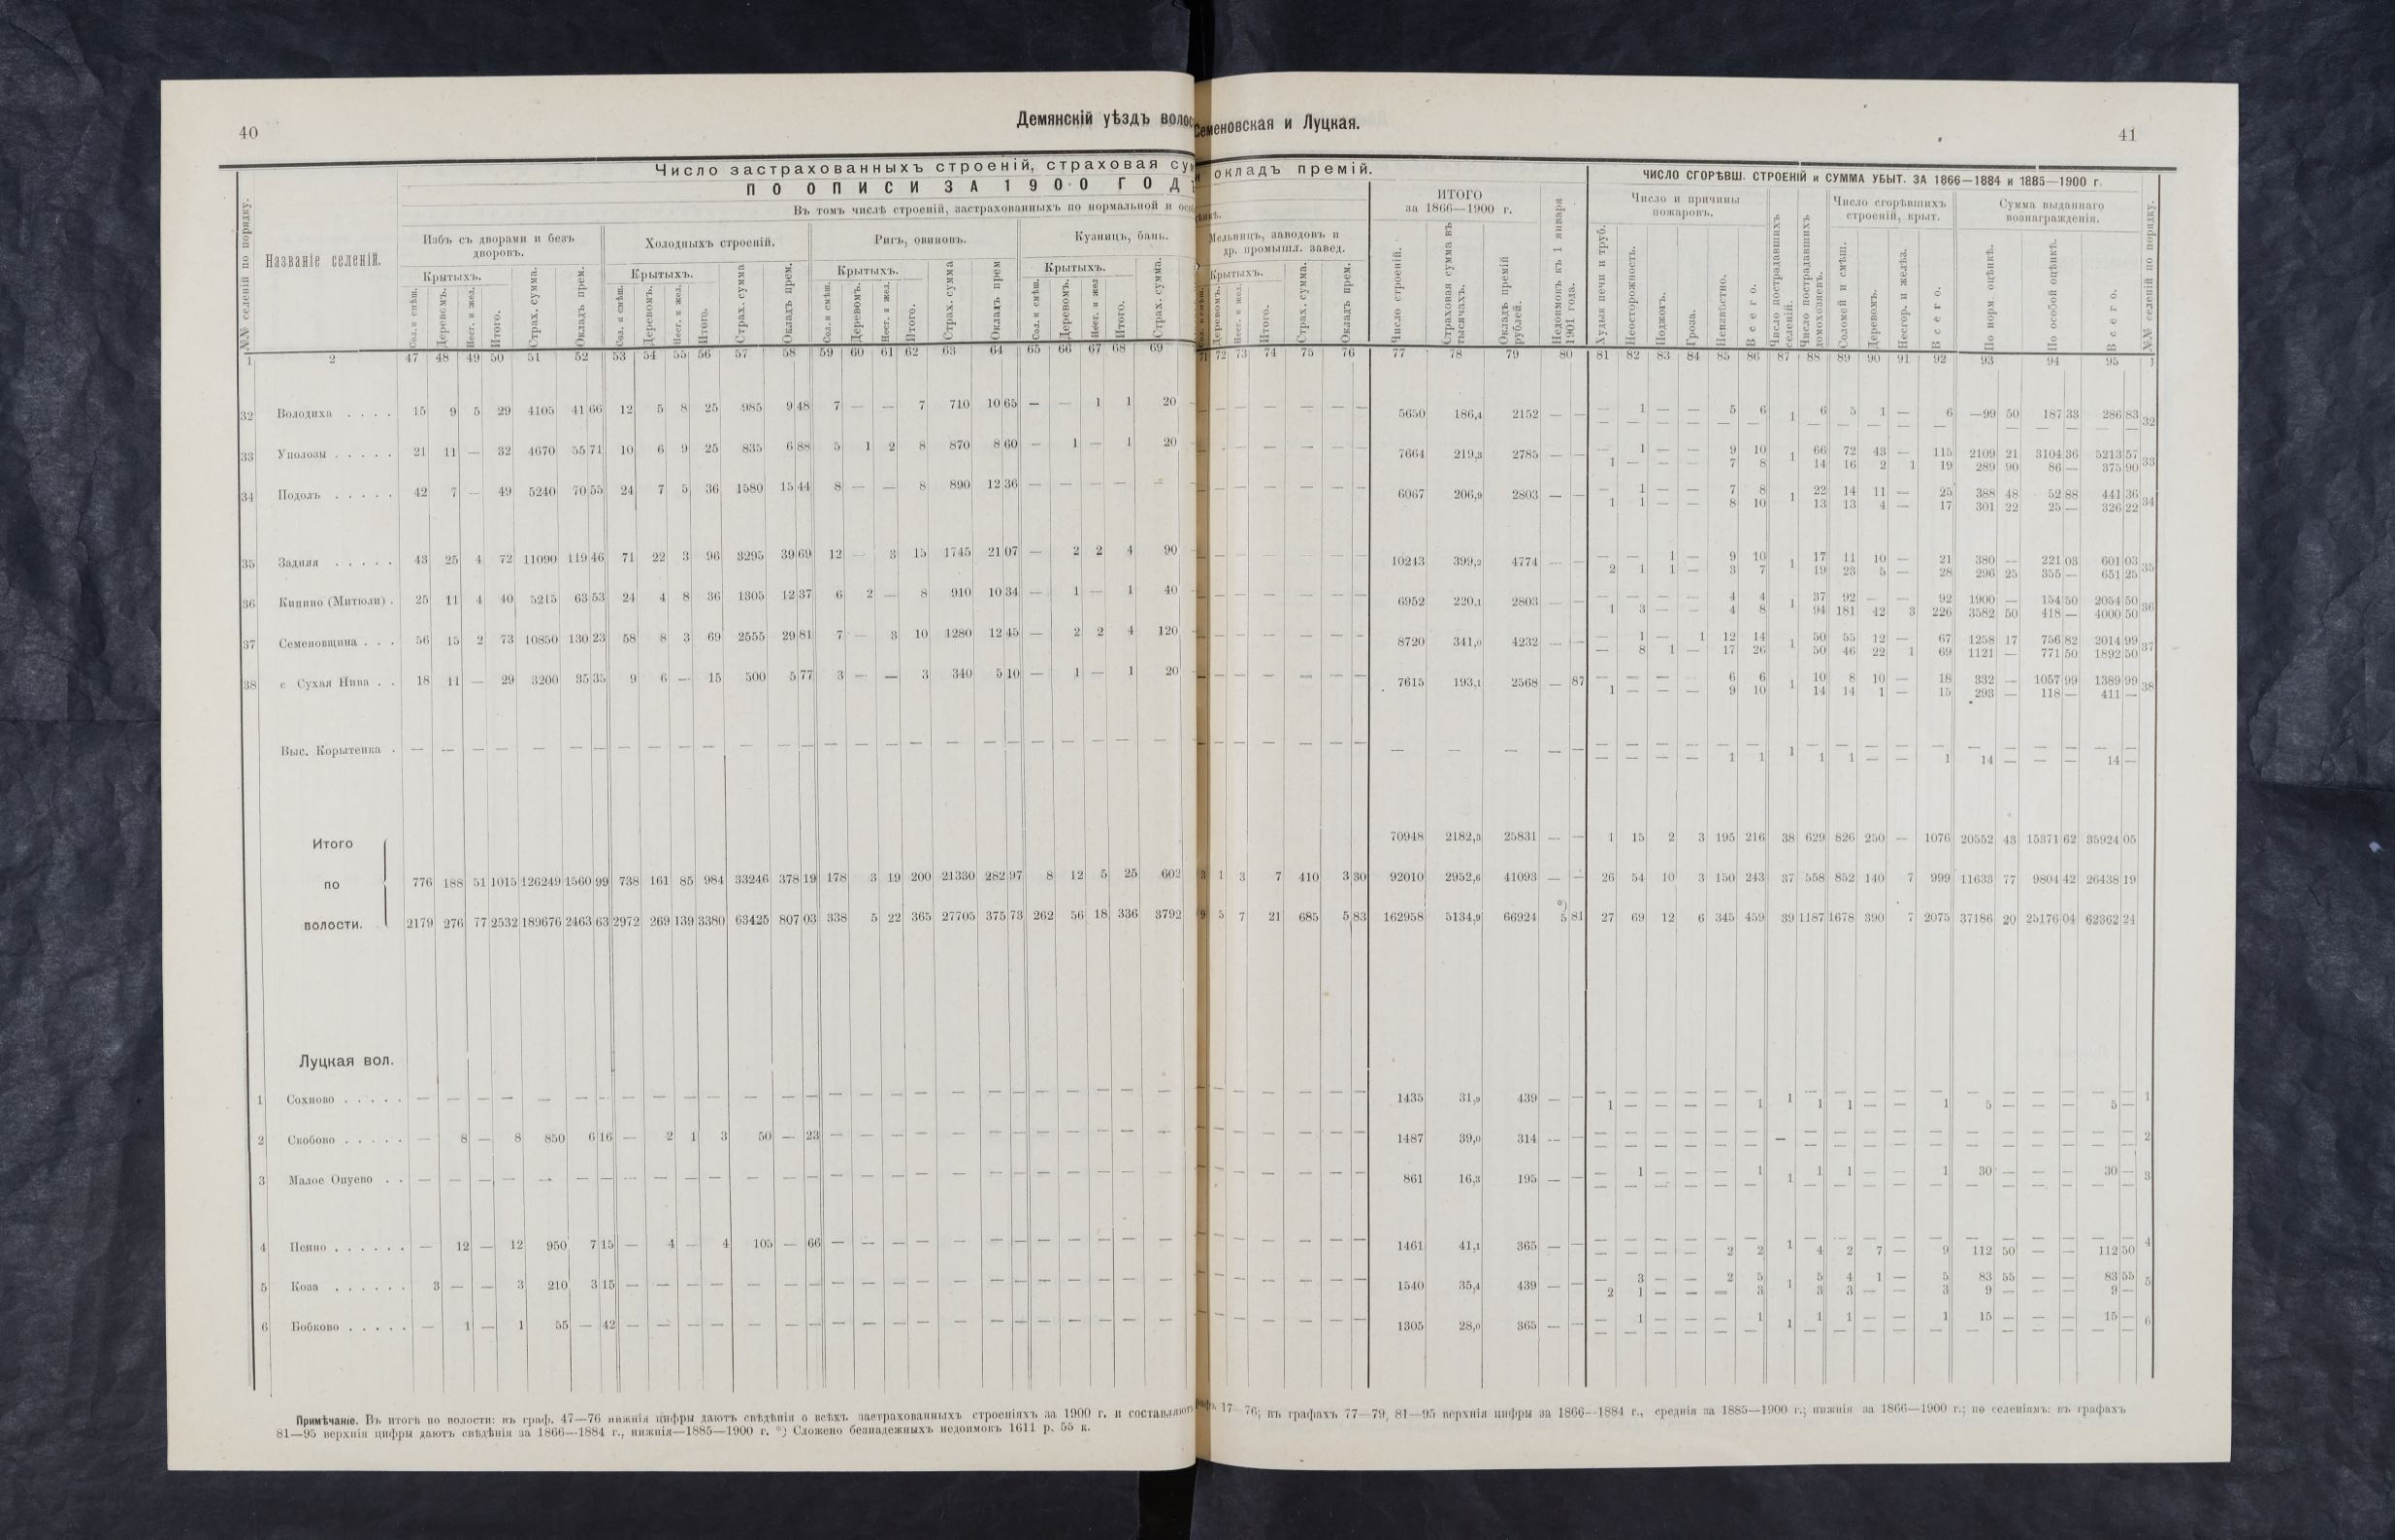 40
Демянскій уѣздъ волос
Семеновская и Луцкая.
41
Число застрахованныхъ строеній, страховая сум
окладъ премій.
ПО ОПИСИ ЗА 1900 ГОДЪ
Въ томъ числѣ строеній, застрахованныхъ по нормальной и особ
ѣнкѣ.
ИТОГО за 1866—1900 г.
ЧИСЛО СГОРѢВШ. СТРОЕНІЙ и СУММА УБЫТ. ЗА 1866—1884 и 1885—1900 г.
№№ селеній по порядку.
Названіе селеній.
Избъ съ дворами и безъ дворовъ.
Холодныхъ строеній.
Ригъ, овиновъ.
Кузницъ, бань.
Мельницъ, заводовъ и др. промышл. завед.
Число и причины пожаровъ.
Число сгорѣвшихъ строеній, крыт.
Сумма выданнаго вознагражденія.
Крытыхъ. Крытыхъ. Крытыхъ. Крытыхъ. Крытыхъ.
Сол. и смѣш. Деревомъ. Несг. и жел. Итого. Страх. сумма. Окладъ прем.
Сол. и смѣш. Деревомъ. Несг. и жел. Итого. Страх. сумма Окладъ прем.
Сол. и смѣш. Деревомъ. Несг. и жел. Итого. Страх. сумма Окладъ прем
Сол. и смѣш. Деревомъ. Несг. и жел Итого. Страх. сумма.
Деревомъ. Несг. и жел. Итого. Страх. сумма. Окладъ прем.
Число строеній. Страховая сумма въ тысячахъ. Окладъ премій рублей. Недоимокъ къ 1 января 1901 года.
Худыя печи и труб. Неосторожность. Поджогъ. Гроза. Неизвѣстно. Всего. Число пострадавшихъ селеній. Число пострадавшихъ домохозяевъ. Соломой и смѣш. Деревомъ. Несгор. и желѣз. Всего. По норм. оцѣнкѣ. По особой оцѣнкѣ. Всего. №№ селеній по порядку.
1 2 47 48 49 50 51 52 53 54 55 56 57 58 59 60 61 62 63 64 65 66 67 68 69 71 72 73 74 75 76 77 78 79 80 81 82 83 84 85 86 87 88 89 90 91 92 93 94 95 1
32 Володиха . . . . 15 9 5 29 4105 41 66 12 5 8 25 985 9 48 7 — — 7 710 10 65 — — 1 1 20 — — — — — — 5650 186,4 2152 — — — 1 — — 5 6 1 6 5 1 — 6 —99 50 187 33 286 83 32
— — — — — — — — — — — — — — — —
33 Уполозы . . . . . 21 11 — 32 4670 55 71 10 6 9 25 835 6 88 5 1 2 8 870 8 60 — 1 — 1 20 — — — — — — 7664 219,3 2785 — — — 1 — — 9 10 1 66 72 43 — 115 2109 21 3104 36 5213 57 33
1 — — — 7 8 14 16 2 1 19 289 90 86 — 375 90
34 Подолъ . . . . . 42 7 — 49 5240 70 55 24 7 5 36 1580 15 44 8 — — 8 890 12 36 — — — — — — — — — — — 6067 206,9 2803 — — — 1 — — 7 8 1 22 14 11 — 25 388 48 52 88 441 36 34
1 1 — — 8 10 13 13 4 — 17 301 22 25 — 326 22
35 Задняя . . . . . 43 25 4 72 11090 119 46 71 22 3 96 3295 39 69 12 — 3 15 1745 21 07 — 2 2 4 90 — — — — — — 10243 399,2 4774 — — — — 1 — 9 10 1 17 11 10 — 21 380 — 221 03 601 03 35
2 1 1 — 3 7 19 23 5 — 28 296 25 355 — 651 25
36 Кипино (Митюли) . 25 11 4 40 5215 63 53 24 4 8 36 1305 12 37 6 2 — 8 910 10 34 — 1 — 1 40 — — — — — — 6952 220,1 2803 — — — — — — 4 4 1 37 92 — — 92 1900 — 154 50 2054 50 36
1 3 — — 4 8 94 181 42 3 226 3582 50 418 — 4000 50
37 Семеновщина . . . 56 15 2 73 10850 130 23 58 8 3 69 2555 29 81 7 — 3 10 1280 12 45 — 2 2 4 120 — — — — — — 8720 341,0 4232 — — — 1 — 1 12 14 1 50 55 12 — 67 1258 17 756 82 2014 99 37
— 8 1 — 17 26 50 46 22 1 69 1121 — 771 50 1892 50
38 с Сухая Нива . . 18 11 — 29 3200 35 35 9 6 — 15 500 5 77 3 — — 3 340 5 10 — 1 — 1 20 — — — — — — 7615 193,1 2568 — 87 — — — — 6 6 1 10 8 10 — 18 332 — 1057 99 1389 99 38
1 — — — 9 10 14 14 1 — 15 293 — 118 — 411 —
Выс. Корытенка . — — — — — — — — — — — — — — — — — — — — — — — — — — — — — — — — — — — — — — — — 1 — — — — — — — — — —
— — — — 1 1 1 1 — — 1 14 — — — 14 —
Итого 70948 2182,3 25831 — — 1 15 2 3 195 216 38 629 826 250 — 1076 20552 43 15371 62 35924 05
по 776 188 51 1015 126249 1560 99 738 161 85 984 33246 378 19 178 3 19 200 21330 282 97 8 12 5 25 602 3 1 3 7 410 3 30 92010 2952,6 41093 — — 26 54 10 3 150 243 37 558 852 140 7 999 11633 77 9804 42 26438 19
волости. 2179 276 77 2532 189676 2463 63 2972 269 139 3380 63425 807 03 338 5 22 365 27705 375 73 262 56 18 336 3792 9 5 7 21 685 5 83 162958 5134,9 66924 *) 5 81 27 69 12 6 345 459 39 1187 1678 390 7 2075 37186 20 25176 04 62362 24
Луцкая вол.
1 Сохново . . . . . — — — — — — — — — — — — — — — — — — — — — — — — — — — — — — 1435 31,9 439 — — — — — — — — 1 — — — — — — — — — — 1
1 — — — — 1 1 1 — — 1 5 — — — 5 —
2 Скобово . . . . . — 8 — 8 850 6 16 — 2 1 3 50 — 23 — — — — — — — — — — — — — — — — — 1487 39,0 314 — — — — — — — — — — — — — — — — — — — 2
— — — — — — — — — — — — — — — —
3 Малое Опуево . . — — — — — — — — — — — — — — — — — — — — — — — — — — — — — — 861 16,3 195 — — — 1 — — — 1 1 1 1 — — 1 30 — — — 30 — 3
— — — — — — — — — — — — — — — —
4 Пенно . . . . . . — 12 — 12 950 7 15 — 4 — 4 105 — 66 — — — — — — — — — — — — — — — — — 1461 41,1 365 — — — — — — — — 1 — — — — — — — — — — 4
— — — — 2 2 4 2 7 — 9 112 50 — — 112 50
5 Коза . . . . . . 3 — — 3 210 3 15 — — — — — — — — — — — — — — — — — — — — — — — 1540 35,4 439 — — — 3 — — 2 5 1 5 4 1 — 5 83 55 — — 83 55 5
2 1 — — — 3 3 3 — — 3 9 — — — 9 —
6 Бобково . . . . . — 1 — 1 55 — 42 — — — — — — — — — — — — — — — — — — — — — — — 1305 28,0 365 — — — 1 — — — 1 1 1 1 — — 1 15 — — — 15 — 6
— — — — — — — — — — — — — — — —
Примѣчаніе. Въ итогѣ по волости: въ граф. 47—76 нижнія цифры даютъ свѣдѣнія о всѣхъ застрахованныхъ строеніяхъ за 1900 г. и составляютъ графъ 17—76; въ графахъ 77—79, 81—95 верхнія цифры за 1866—1884 г., среднія за 1885—1900 г.; нижнія за 1866—1900 г.; по селеніямъ: въ графахъ
81—95 верхнія цифры даютъ свѣдѣнія за 1866—1884 г., нижнія—1885—1900 г. *) Сложено безнадежныхъ недоимокъ 1611 р. 55 к.